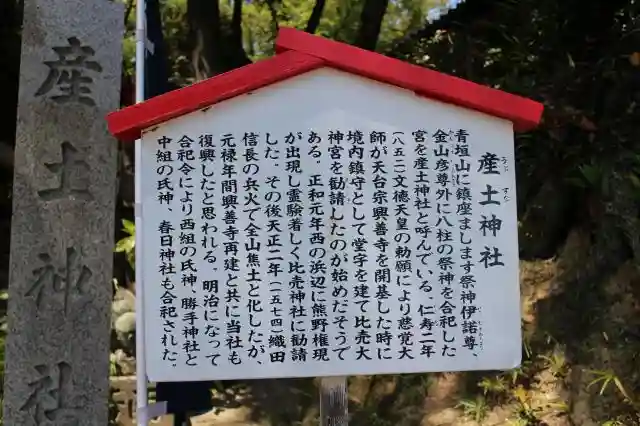 産土神社
産土神社
うぶすな
青垣山に鎮座まします祭神伊諾尊、
金山彦尊外に八柱の祭神を合祀した
宮を産土神社と呼んでいる。仁寿二年
(八五二)文徳天皇の勅願により慈覚大
師が天台宗興善寺を開基した時に
境内鎮守として堂宇を建て比売大
神宮を勧請したのが始めだそうで
ある。正和元年西の浜辺に熊野権現
が出現し霊験着しく比売神社に勧請
した。その後天正二年(一五七四)織田
信長の兵火で全山焦土と化したが、
元禄年間興善寺再建と共に当社も
復興したと思われる。明治になって
合祀令により西組の氏神、勝手神社と
中組の氏神、春日神社も合祀された。